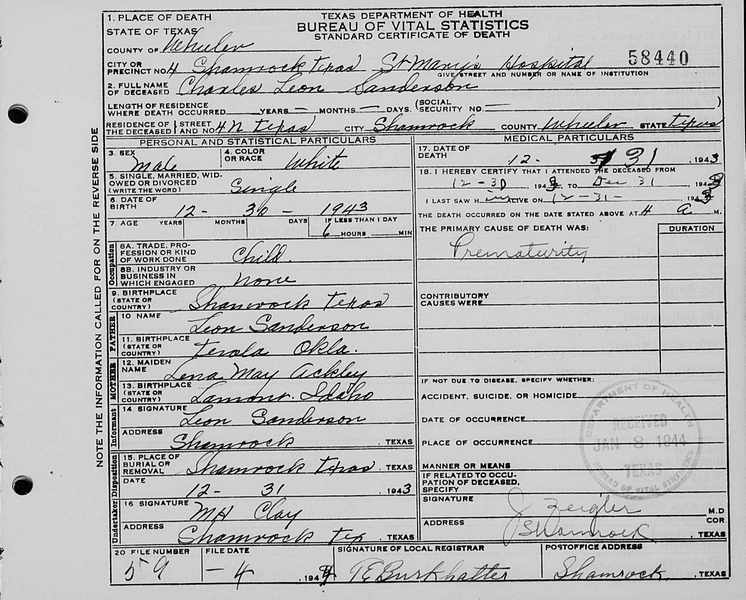 TEXAS DEPARTMENT OF HEALTH
BUREAU OF VITAL STATISTICS
STANDARD CERTIFICATE OF DEATH
1. PLACE OF DEATH
STATE OF TEXAS
COUNTY OF Wheeler
58440
CITY OR PRECINCT NO. 4 Shamrock Texas St Mary's Hospital
GIVE STREET AND NUMBER OR NAME OF INSTITUTION
2. FULL NAME OF DECEASED Charles Leon Sanderson
LENGTH OF RESIDENCE WHERE DEATH OCCURRED YEARS MONTHS DAYS. (SOCIAL SECURITY NO.
RESIDENCE OF THE DECEASED STREET AND NO. 4 N Texas CITY Shamrock COUNTY Wheeler STATE Texas
PERSONAL AND STATISTICAL PARTICULARS
3. SEX Male
4. COLOR OR RACE White
5. SINGLE, MARRIED, WIDOWED OR DIVORCED (WRITE THE WORD) Single
6. DATE OF BIRTH 12-30-1943
7. AGE YEARS MONTHS DAYS IF LESS THAN 1 DAY
6 HOURS MIN
Occupation
8A. TRADE, PROFESSION OR KIND OF WORK DONE Child
8B. INDUSTRY OR BUSINESS IN WHICH ENGAGED None
9. BIRTHPLACE (STATE OR COUNTRY) Shamrock Texas
FATHER
10 NAME Leon Sanderson
11. BIRTHPLACE (STATE OR COUNTRY) Okla.
MOTHER
12. MAIDEN NAME Lena May Ackley
13. BIRTHPLACE (STATE OR COUNTRY) Lamont. Idaho
Informant
14 SIGNATURE Leon Sanderson
ADDRESS Shamrock, TEXAS
Disposition
15. PLACE OF BURIAL OR REMOVAL Shamrock Texas, TEXAS
12-31 1943
Undertaker
16 SIGNATURE MH Clay
ADDRESS Shamrock Tex, TEXAS
MEDICAL PARTICULARS
17. DATE OF DEATH 12-31, 1943
18. I HEREBY CERTIFY THAT I ATTENDED THE DECEASED FROM
12-30 1943 TO Dec 31 1943
I LAST SAW him ALIVE ON 12-31- 1943
THE DEATH OCCURRED ON THE DATE STATED ABOVE AT 4 a M.
THE PRIMARY CAUSE OF DEATH WAS:
DURATION
Prematurity
CONTRIBUTORY CAUSES WERE
IF NOT DUE TO DISEASE, SPECIFY WHETHER:
ACCIDENT, SUICIDE, OR HOMICIDE
DATE OF OCCURRENCE
PLACE OF OCCURRENCE
MANNER OR MEANS
IF RELATED TO OCCUPATION OF DECEASED, SPECIFY
SIGNATURE J Zeigler M.D
COR.
ADDRESS Shamrock, TEXAS
DEPARTMENT OF HEALTH
RECEIVED
JAN 8 1944
TEXAS
BUREAU OF VITAL STATISTICS
20 FILE NUMBER 59
FILE DATE -4 1944
SIGNATURE OF LOCAL REGISTRAR TE Burkhalter
POSTOFFICE ADDRESS Shamrock, TEXAS
NOTE THE INFORMATION CALLED FOR ON THE REVERSE SIDE